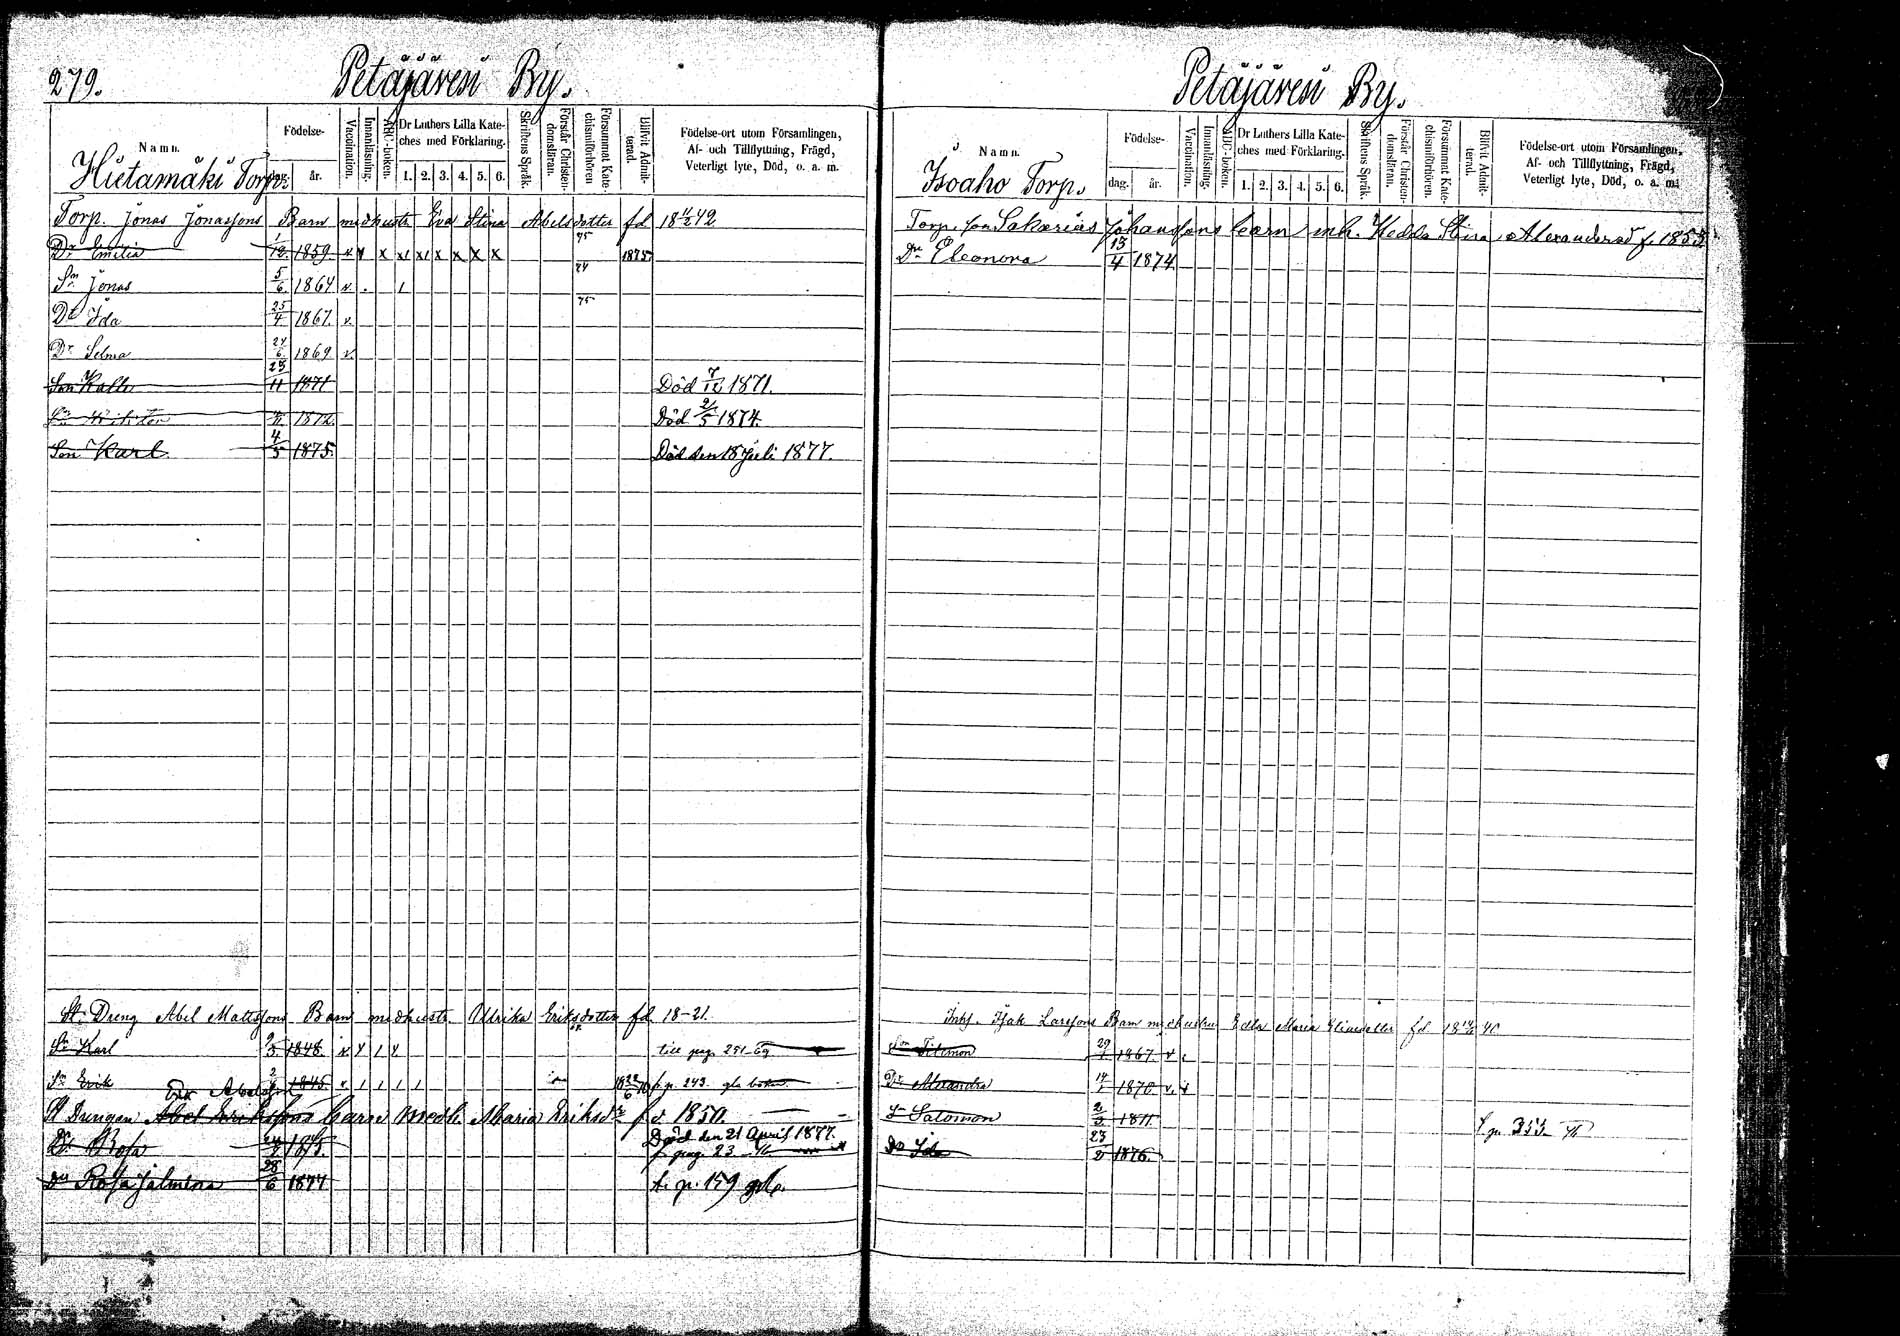 279.
Petäjävesi By.
Namn.
Födelse-
dag.
år.
Vaccination.
Innanläsning.
ABC-boken.
Dr Luthers Lilla Kate-
ches med Förklaring.
1. 2. 3. 4. 5. 6.
Skriftens Språk.
Förstår Christen-
domsläran.
Försummat Kate-
chismiförhören
Blifvit Admit-
terad.
Födelse-ort utom Församlingen,
Af- och Tillflyttning, Frägd,
Veterligt lyte, Död, o. a. m.
Hietamäki Torp.
Torp. Jonas Jonassons Barn m. d hustr. Eva Stina Abelsdotter fd 18 11/2 42
Dr Emilia 1/12 1859 x x x x x x x x 75 1875
Sn Jonas 5/6 1864 v. 1 74
Dr Ida 25/4 1867. v. 75
Dr Selma 24/6 1869 v.
Son Kalle 23/11 1871 Död 7/12 1871.
Sn 1872. Död 2/5 1874.
Son Karl 4/5 1875. Död den 18 Juli 1877.
St. Dreng Abel Mattssons Barn med hustr. Ulrika Eriksdotter fd. 18-21.
Sn Karl 9/5 1848 till pag. 251-69
Sn Erik 1845 p. 243. gla boken
Erik Abelsson
St Drengen Abel Erikssons barn med h. Maria Eriksdr fd 1850.
Dr Rosa 1875. Död den 21 April 1877.
f. pag. 23 76
Dr Rosa Jalmina 28/6 1877 fr. p. 159
Petäjävesi By.
Namn.
Födelse-
dag.
år.
Vaccination.
Innanläsning.
ABC-boken.
Dr Luthers Lilla Kate-
ches med Förklaring.
1. 2. 3. 4. 5. 6.
Skriftens Språk.
Förstår Christen-
domsläran.
Försummat Kate-
chismiförhören.
Blifvit Admit-
terad.
Födelse-ort utom Församlingen,
Af- och Tillflyttning, Frägd,
Veterligt lyte, Död, o. a. m.
Isoaho Torp.
Torp. son Sakarias Johanssons barn m. h. Hedda Stina Alexandersd f. 1853.
Dr Eleonora 13/4 1874
Inhs. Isak Larssons Barn med hustrun Edla Maria Eliaedotter fd 18 40
Son Filemon 29/1 1867. v.
Dr Alexandra 14/1 1870 v.
Sn Salomon 2/3 1871. p. 353 76
Dr Ida 23/2 1876.